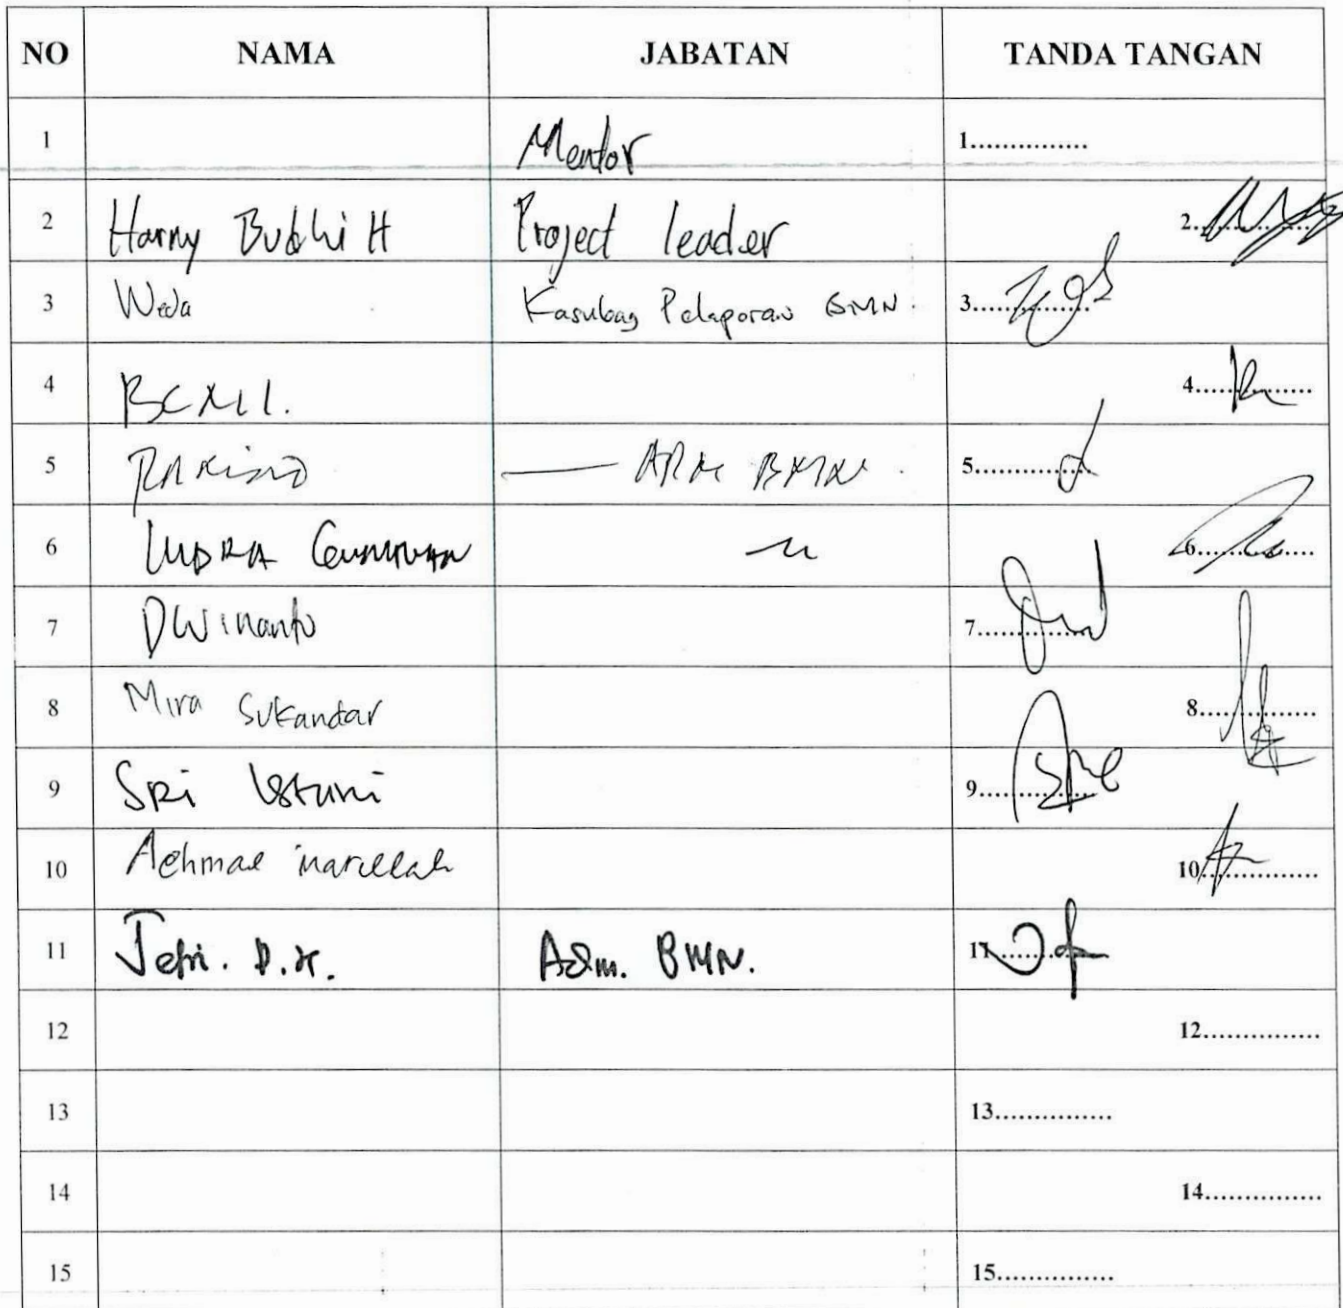 NO NAMA JABATAN TANDA TANGAN
1 Mentor 1...............
2 Harny Budhi H Project leader 2...............
3 Weda Kasubag Pelaporan BMN. 3...............
4 4...............
5 5...............
6 INDRA GUNAWAN 6...............
7 DWinanto 7...............
8 Mira Sukandar 8...............
9 SRi 9...............
10 Achmad 10...............
11 Jefri. D.K. Adm. BMN. 11...............
12 12...............
13 13...............
14 14...............
15 15...............